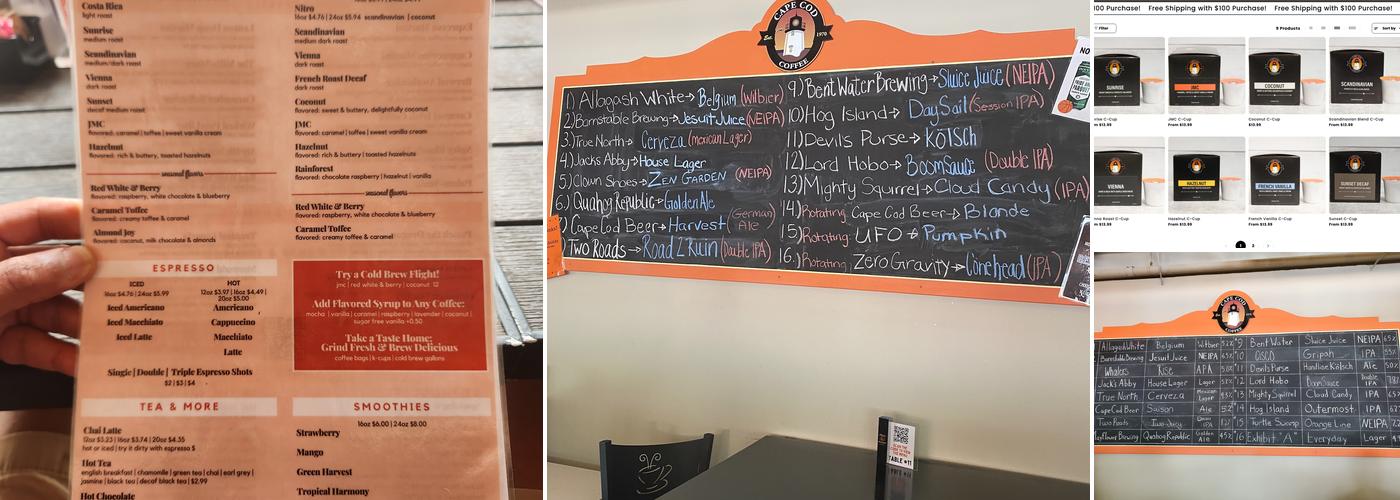 Costa Rica
light roast
Sunrise
medium roast
Scandinavian
medium/dark roast
Vienna
dark roast
Sunset
decaf medium roast
JMC
flavored: caramel | toffee | sweet vanilla cream
Hazelnut
flavored: rich & buttery, toasted hazelnuts
seasonal flavors
Red White & Berry
flavored: raspberry, white chocolate & blueberry
Caramel Toffee
flavored: creamy toffee & caramel
Almond Joy
flavored: coconut, milk chocolate & almonds
Nitro
16oz $4.76 | 24oz $5.94 scandinavian | coconut
Sunrise
medium roast
Vienna
dark roast
French Roast Decaf
dark roast
Coconut
flavored: sweet & buttery, delightfully coconut
JMC
flavored: caramel | toffee | sweet vanilla cream
Hazelnut
flavored: rich & buttery | toasted hazelnuts
Rainforest
flavored: chocolate raspberry | hazelnut | vanilla
seasonal flavors
Red White & Berry
flavored: raspberry, white chocolate & blueberry
Caramel Toffee
flavored: creamy toffee & caramel
ESPRESSO
ICED
16oz $4.76 | 24oz $5.99
Iced Americano
Iced Macchiato
Iced Latte
HOT
12oz $3.97 | 16oz $4.49 |
20oz $5.00
Americano
Cappuccino
Macchiato
Latte
Single | Double | Triple Espresso Shots
$2 | $3 | $4
Try a Cold Brew Flight!
jmc | red white & berry | coconut 12
Add Flavored Syrup to Any Coffee:
mocha | vanilla | caramel | raspberry | lavender | coconut |
sugar free vanilla +0.50
Take a Taste Home:
Grind Fresh & Brew Delicious
coffee bags | k-cups | cold brew gallons
TEA & MORE
Chai Latte
12oz $3.23 | 16oz $3.74 | 20oz $4.35
hot or iced | try it dirty with espresso $
Hot Tea
english breakfast | chamomile | green tea | chai | earl grey |
jasmine | black tea | decaf black tea | $2.99
Hot Chocolate
SMOOTHIES
16oz $6.00 | 24oz $8.00
Strawberry
Mango
Green Harvest
Tropical Harmony
CAPE COD
Est. 1970
COFFEE
1) Allagash White → Belgium (Witbier)
2) Barnstable Brewing → Jesuit Juice (NEIPA)
3.) True North → Cerveza (mexican Lager)
4) Jacks Abby → House Lager
5.) Clown Shoes → ZEN GARDEN (NEIPA)
6.) Quahog Republic → Golden Ale
) Cape Cod Beer → Harvest (German Ale
) Two Roads → Road 2 Ruin (Double IPA)
9.) Bent Water Brewing → Sluice Juice (NEIPA)
10.) Hog Island → Day Sail (Session IPA)
11.) Devils Purse → KÖlSCh
12.) Lord Hobo → BoomSauce (Double IPA)
13.) Mighty Squirrel → Cloud Candy (IPA)
14.) Rotating: Cape Cod Beer → Blonde
15.) Rotating: UFO → Pumpkin
16.) Rotating: Zero Gravity → Conehead (IPA)
NO
TABLE #11
100 Purchase! Free Shipping with $100 Purchase! Free Shipping with $100 Purchase!
Filter
9 Products
Sort by
SUNRISE
JMC
COCONUT
SCANDINAVIAN
Sunrise C-Cup
JMC C-Cup
Coconut C-Cup
Scandinavian Blend C-Cup
m $13.99
From $13.99
From $13.99
From $13.99
VIENNA
HAZELNUT
FRENCH VANILLA
SUNSET DECAF
nna Roast C-Cup
Hazelnut C-Cup
French Vanilla C-Cup
Sunset C-Cup
m $13.99
From $13.99
From $13.99
From $13.99
1 2
CAPE COD
COFFEE
Allagash White Belgium Witbier 5.2% 9 Bent Water Sluice Juice NEIPA 6.5%
Barnstable Brewing Jesuit Juice NEIPA 10 Gripah IPA
Whalers Rise APA 11 Devils Purse Handline Kölsch Ale
Jack's Abby House Lager Lager 12 Lord Hobo BoomSauce Double IPA
True North Cerveza Mexican Lager 13 Mighty Squirrel Cloud Candy IPA
Cape Cod Beer Saison Ale 14 Hog Island Outermost IPA
Two Roads Two Juicy 15 Turtle Swamp Orion NEIPA
Mayflower Brewing Quahog Republic Golden Ale 16 Exhibit "A" Everyday Lager